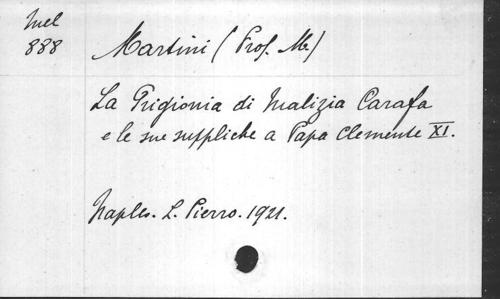 Mel
888
Martini (Prof. M.)
La Prigionia di Malizia Carafa
e le sue suppliche a Papa Clemente XI.
Naples. L. Pierro. 1921.